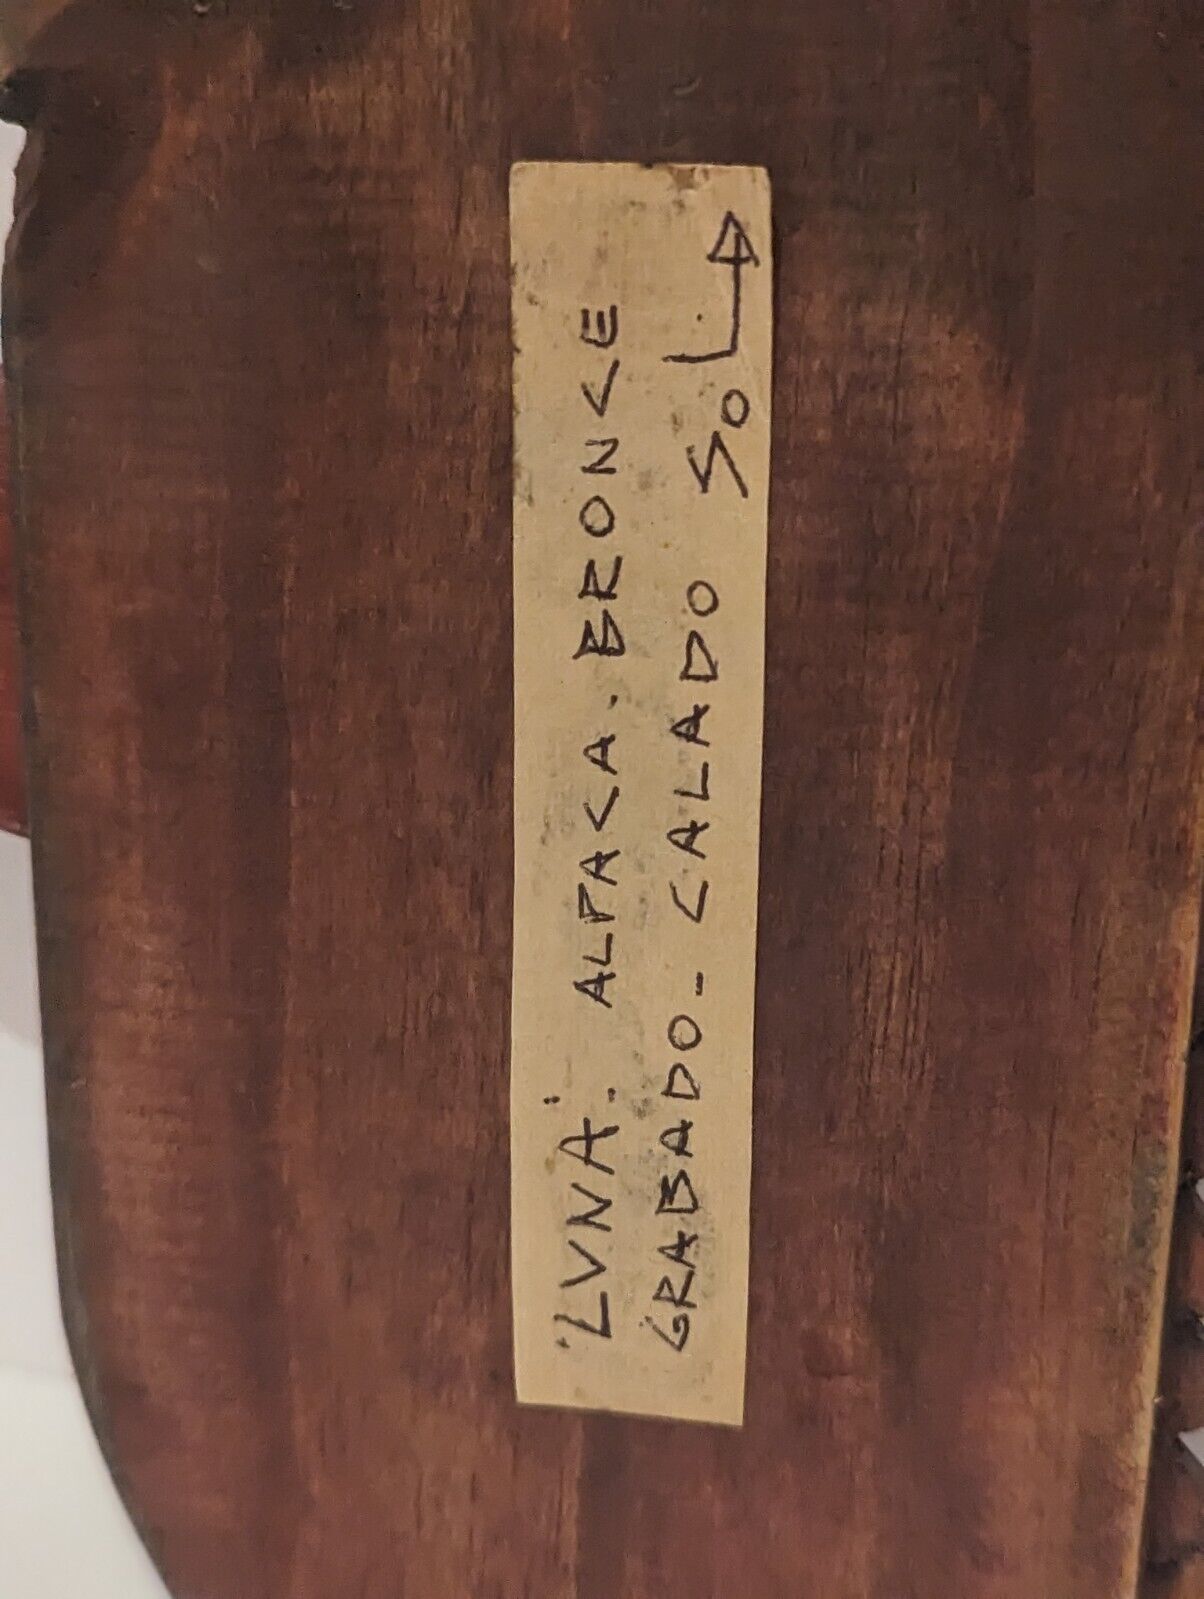 "LVNA". ALPACA. BRONCE
GRABADO - CALADO